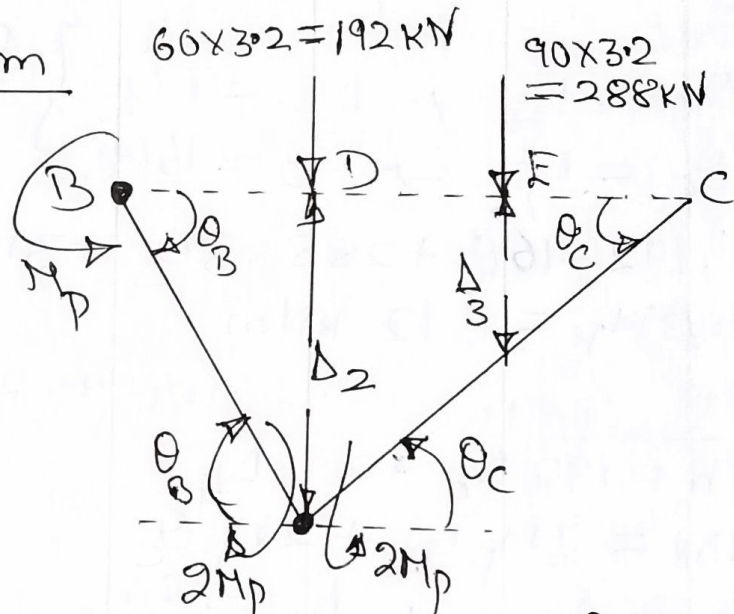 m
60×3·2=192KN
90×3·2
=288KN
B
D
E
C
θB
θC
Mp
Δ3
Δ2
θB
θC
2Mp
2Mp